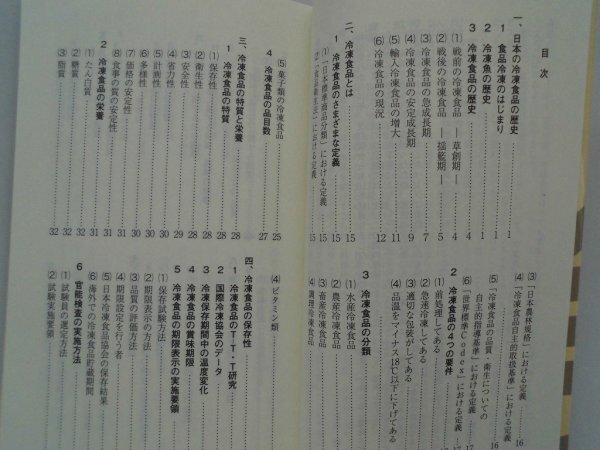 目次
一、日本の冷凍食品の歴史 1
1 食品冷凍のはじまり 1
2 冷凍魚の歴史 1
3 冷凍食品の歴史 4
(1) 戦前の冷凍食品 ―草創期― 4
(2) 戦後の冷凍食品 ―揺籃期― 6
(3) 冷凍食品の急成長期 7
(4) 冷凍食品の安定成長期 9
(5) 輸入冷凍食品の増大 11
(6) 冷凍食品の現況 12
二、冷凍食品とは 15
1 冷凍食品のさまざまな定義 15
(1) 「日本標準商品分類」における定義 15
における定義 15
(3) 「日本農林規格」における定義 16
(4) 「冷凍食品自主的取扱基準」における定義 16
(5) 「冷凍食品の品質・衛生についての
自主的指導基準」における定義 16
(6) 「世界標準Codex」における定義 17
2 冷凍食品の4つの要件
(1) 前処理してある
(2) 急速冷凍してある
(3) 適切な包装がしてある
(4) 品温をマイナス18℃以下に下げてある
3 冷凍食品の分類
(1) 水産冷凍食品
(2) 農産冷凍食品
(3) 畜産冷凍食品
(4) 調理冷凍食品
(5) 菓子類の冷凍食品 25
4 冷凍食品の品目数 27
三、冷凍食品の特質と栄養 28
1 冷凍食品の特質 28
(1) 保存性 28
(2) 衛生性 28
(3) 安全性 29
(4) 省力性 29
(5) 計画性 30
(6) 多様性 30
(7) 価格の安定性 30
(8) 食事の質の安定性 31
2 冷凍食品の栄養 31
(1) たん白質 32
(2) 糖質 32
(3) 脂質 32
(4) ビタミン類
四、冷凍食品の保存性
1 冷凍食品のTT・T研究
2 国際冷凍協会のデータ
3 冷凍保存期間中の温度変化
4 冷凍食品の賞味期限
5 冷凍食品の期限表示の実施要領
(1) 保存試験方法
(2) 期限表示の方法
(3) 品質の評価方法
(4) 期限設定を行う者
(5) 日本冷凍食品協会の保存結果
(6) 海外での冷凍食品貯蔵期間
6 官能検査の実施方法
(1) 試験員の選定方法
(2) 試験実施要領